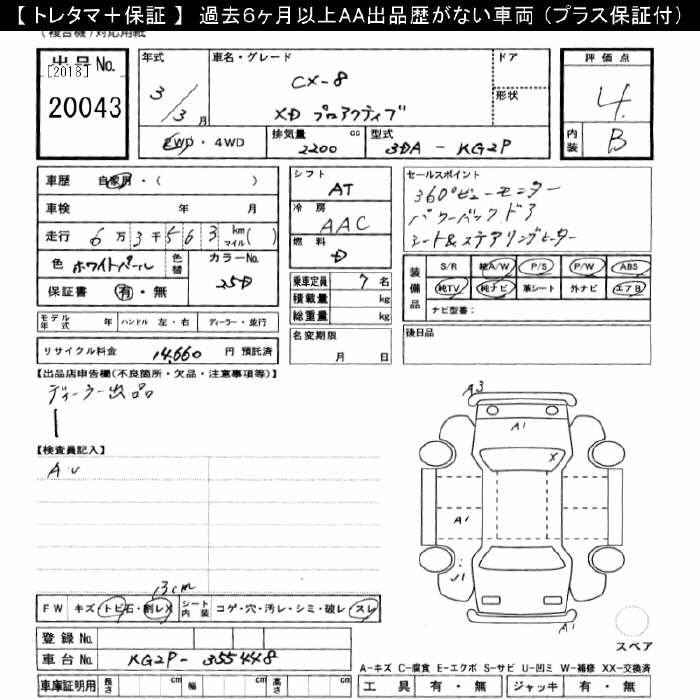 【 トレタマ＋保証 】 過去６ヶ月以上ＡＡ出品歴がない車両（プラス保証付）
(複合機)対応用紙
出品No.
[2018]
20043
年式
3/3月
車名・グレード
CX-8
XD プロアクティブ
ドア
形状
2WD ・ 4WD
排気量 cc
2200
型式
3DA - KG2P
評価点
4
内装
B
車歴 自家用・( )
車検 年 月
走行 6万3千563 km マイル( )
色 ホワイトパール 色替 カラーNo. 25D
保証書 有・無
シフト
AT
冷房
AAC
燃料
D
セールスポイント
360°ビューモニター
パワーバックドア
シート&ステアリングヒーター
装備品
S/R 純A/W P/S P/W ABS
純TV 純ナビ 革シート 外ナビ エアB
ナビ型番：
乗車定員 7 名
積載量 kg
総重量 kg
モデル年式 年 ハンドル 左・右 ディーラー・並行
名変期限
月 日
後日品
リサイクル料金 14,660 円 預託済
【出品店申告欄(不良箇所・欠品・注意事項等)】
ディーラー出品
【検査員記入】
A・U
A3
A1
X
A1
U1
A1
13cm
FW キズ・トビ石・削レX シート内装 コゲ・穴・汚レ・シミ・破レ・スレ
登録No.
車台No. KG2P-355448
車庫証明用 長さ cm 幅 cm 高さ cm
スペア
A-キズ C-腐食 E-エクボ S-サビ U-凹ミ W-補修 XX-交換済
工具 有・無 ジャッキ 有・無